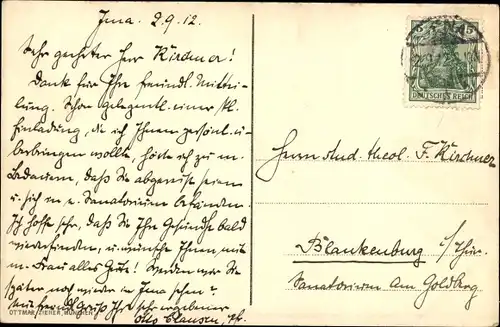 Jena, 2.9.12.
Sehr geehrter Herr Kirchner!
Dank für Ihre freundl. Mittei-
lung. Schon gelegentl. einer kl.
Einladung, die ich Ihnen persönl. ü-
berbringen wollte, hörte ich zu m.
Bedauern, daß Sie abgereist seien
u. sich im e. Sanatorium befänden.
Ich hoffe sehr, daß Sie Ihre Gesundht bald
wiederfinden, u. wünsche Ihnen, mit
m. Frau alles Gute! Werden wir Sie
später noch wieder in Jena sehen?
Mit Ihr sehr ergebener
Otto Clausen, Pf.
OTTMAR ZIEHER, MÜNCHEN
JENA
2.9.12
DEUTSCHES REICH
Herrn stud. theol. F. Kirchner
Blankenburg i/Thür.
Sanatorium am Goldberg